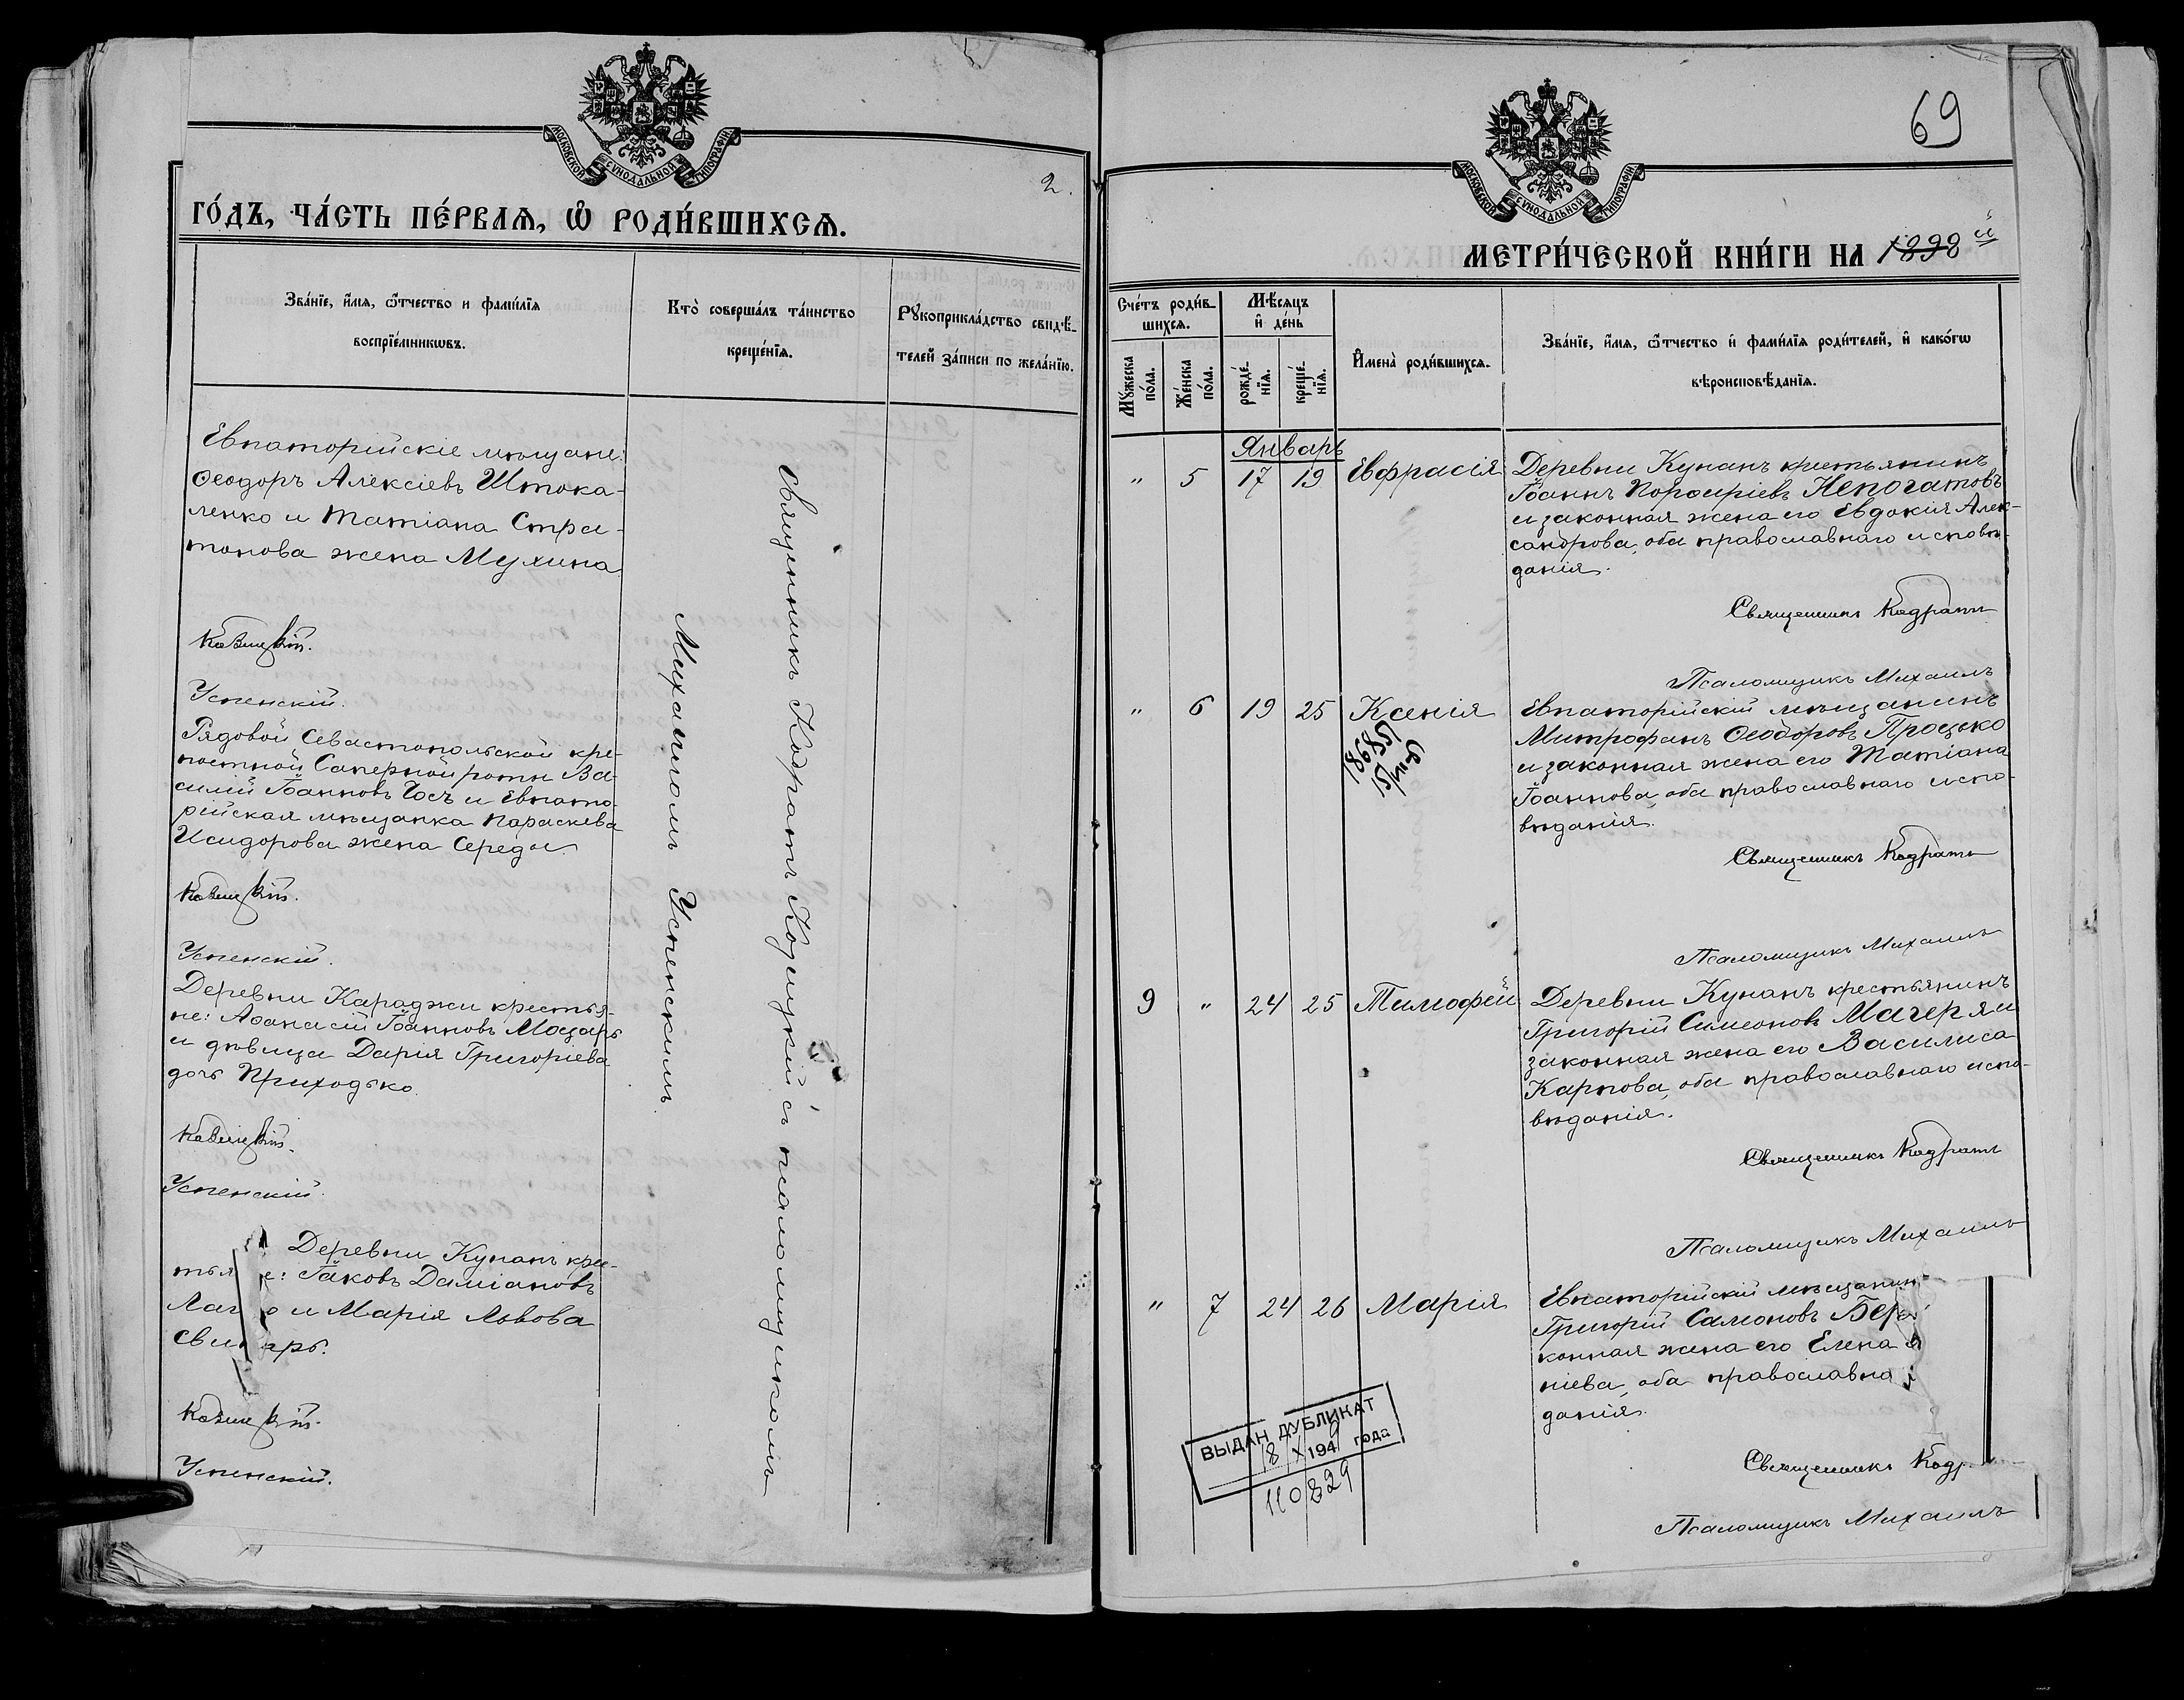 МОСКОВСКОЙ СУНОДАЛЬНОЙ ТИПОГРАФІИ
2.
ГО́ДЪ, ЧА́СТЬ ПЕ́РВАЯ, Ѡ҆ РОДИ́ВШИХСЯ.
Зва́нїе, и҆́мя, ѻ҆́тчество и фами́лїя
воспрїе́мникѡвъ.
Кто̀ соверша́лъ та́инство
креще́нїя.
Рꙋкоприкла́дство свидѣ́-
телей за́писи по жела́нїю.
Евпаторійскіе мѣщане:
Ѳеодоръ Алексіевъ Штока-
ленко и Татіана Стра-
тонова жена Мухина.
Козицкій.
Успенскій.
Рядовой Севастопольской кре-
постной Саперной роты Ва-
силій Іоанновъ и Евпато-
рійская мѣщанка Параскева
Исидорова жена Середы.
Козицкій.
Успенскій.
Деревни Караджи крестья-
не: Аѳанасій Іоанновъ Моцарь
и дѣвица Дарія Григоріева
дочь Приходько.
Козицкій.
Успенскій.
Деревни Кунанъ крес-
тья е: Іаковъ Даміановъ
Лаг о и Марія Львова
Сви арь.
Козицкій.
Успенскій.
Священникъ Кодратъ Козицкій съ псаломщикомъ
Михаиломъ Успенскимъ
МОСКОВСКОЙ СУНОДАЛЬНОЙ ТИПОГРАФІИ
69
МЕТРИ́ЧЕСКОЙ КНИ́ГИ НА 1898й
Сче́тъ роди́в-
шихся.
Мѣ́сяцъ
и҆ де́нь
Мꙋ́жеска
по́ла.
Же́нска
по́ла.
рожде́-
нїя.
креще́-
нїя.
И҆мена̀ роди́вшихся.
Зва́нїе, и҆́мя, ѻ҆́тчество и҆ фами́лїя роди́телей, и҆ како́гѡ
вѣроисповѣ́данїя.
Январь
" 5 17 19 Евфрасія
Деревни Кунанъ крестьянинъ
Іоаннъ Порфиріевъ Непогатовъ
и законная жена его Евдокія Алек-
сандрова, оба православнаго исповѣ-
данія.
Священникъ Кодратъ
Псаломщикъ Михаилъ
" 6 19 25 Ксенія
Евпаторійскій мѣщанинъ
Митрофанъ Ѳеодоровъ Процько
и законная жена его Татіана
Іоаннова, оба православнаго испо-
вѣданія.
Священникъ Кодратъ
Псаломщикъ Михаилъ
9 " 24 25 Тимофей
Деревни Кунанъ крестьянинъ
Григорій Симеоновъ Магеря и
законная жена его Василиса
Карпова, оба православнаго испо-
вѣданія.
Священникъ Кодратъ
Псаломщикъ Михаилъ
" 7 24 26 Марія
Евпаторійскій мѣщанин
Григорій Самоновъ Бер
конная жена его Елена
ніева, оба православна
данія.
Священникъ Кодр
Псаломщикъ Михаилъ
ВЫДАН ДУБЛИКАТ
18 X 1949 года
110829